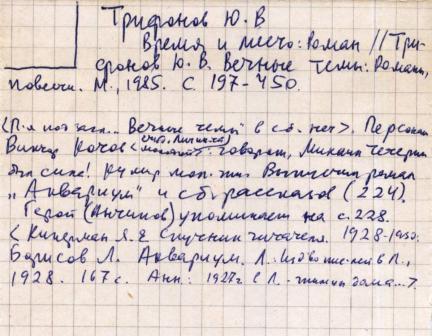 Трифонов Ю. В
Время и место: Роман // Три-
фонов Ю. В. Вечные темы: Романы,
повести. М., 1985. С. 197-450.
<П-я под загл... Вечные темы" в сб. нет>. Персонаж
Виктор Котов говорит, Михаил Тетерин
был сила! Кумир мол-жи Выпустил роман
„Аквариум" и сб. рассказов (224).
Герой (Антипов) упоминает на с. 228.
< Кицерман Я. Е Спутник читателя. 1928-1950:
Борисов Л. Аквариум. Л. Изд-во пис-лей в Л.,
1928. 167 с. Анн: 1927г. с Л. - жильцы дома...>